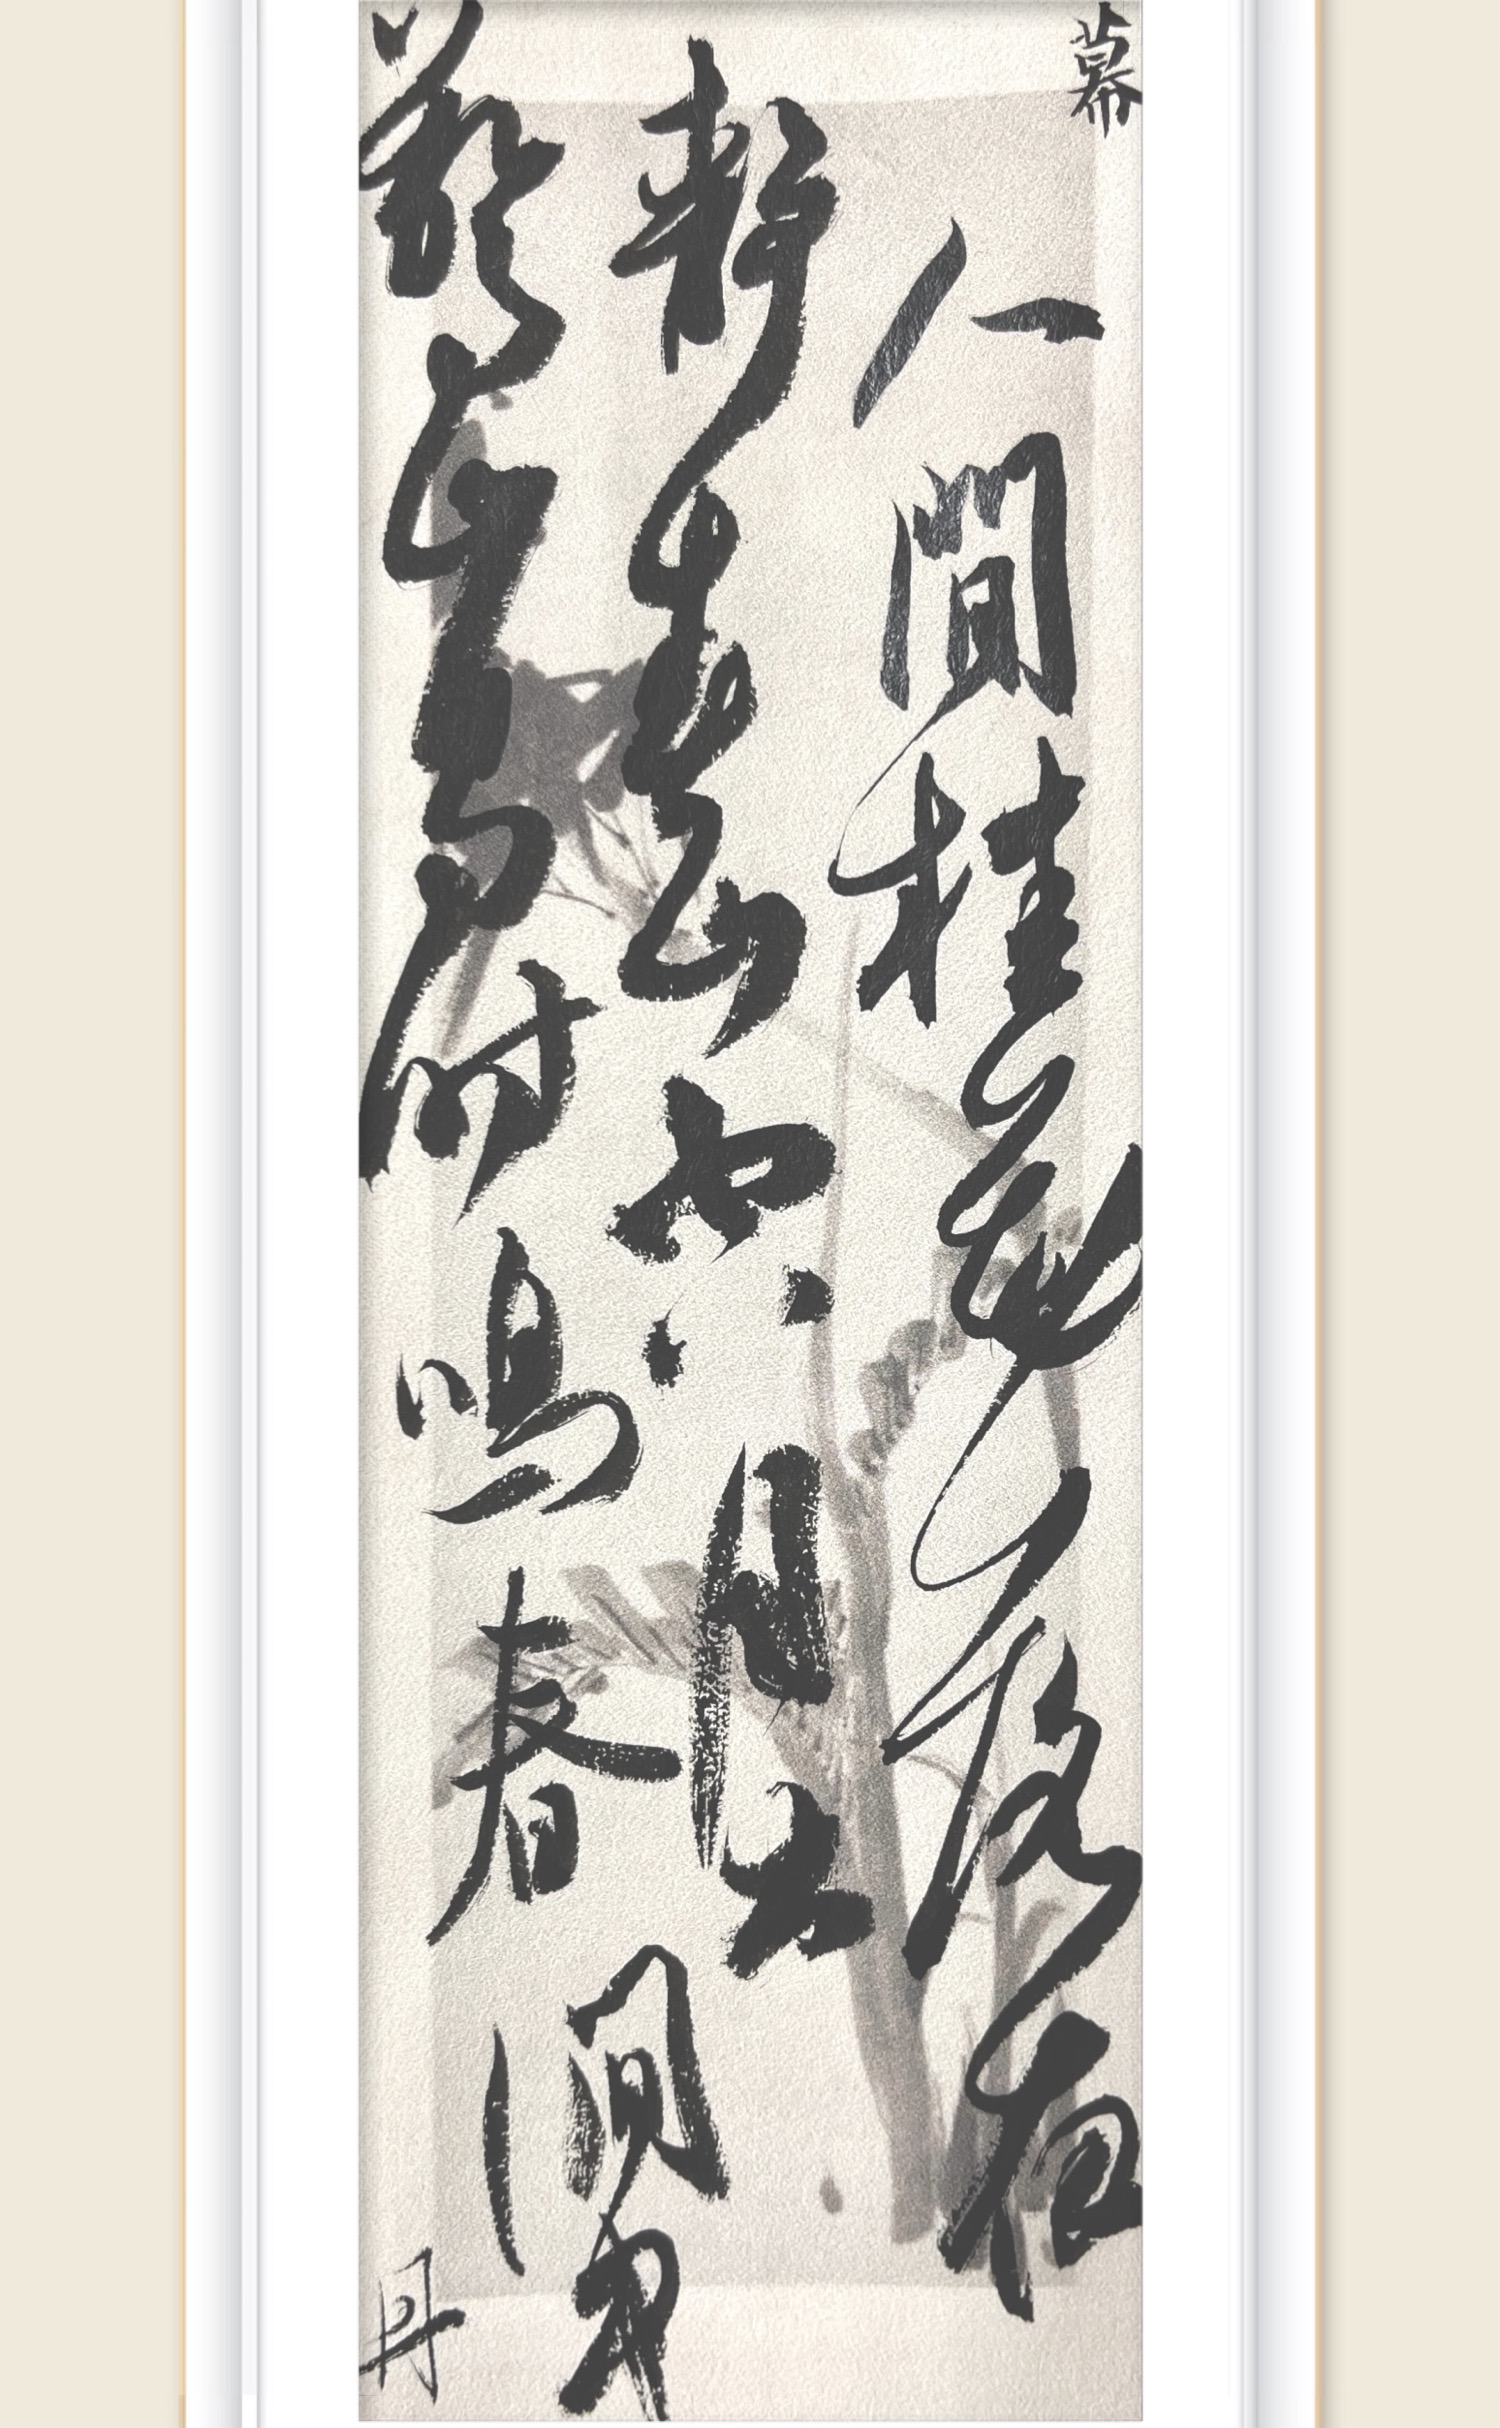 幕
人間桂花落夜
靜春山空月出
驚山鳥時鳴春澗中
丹